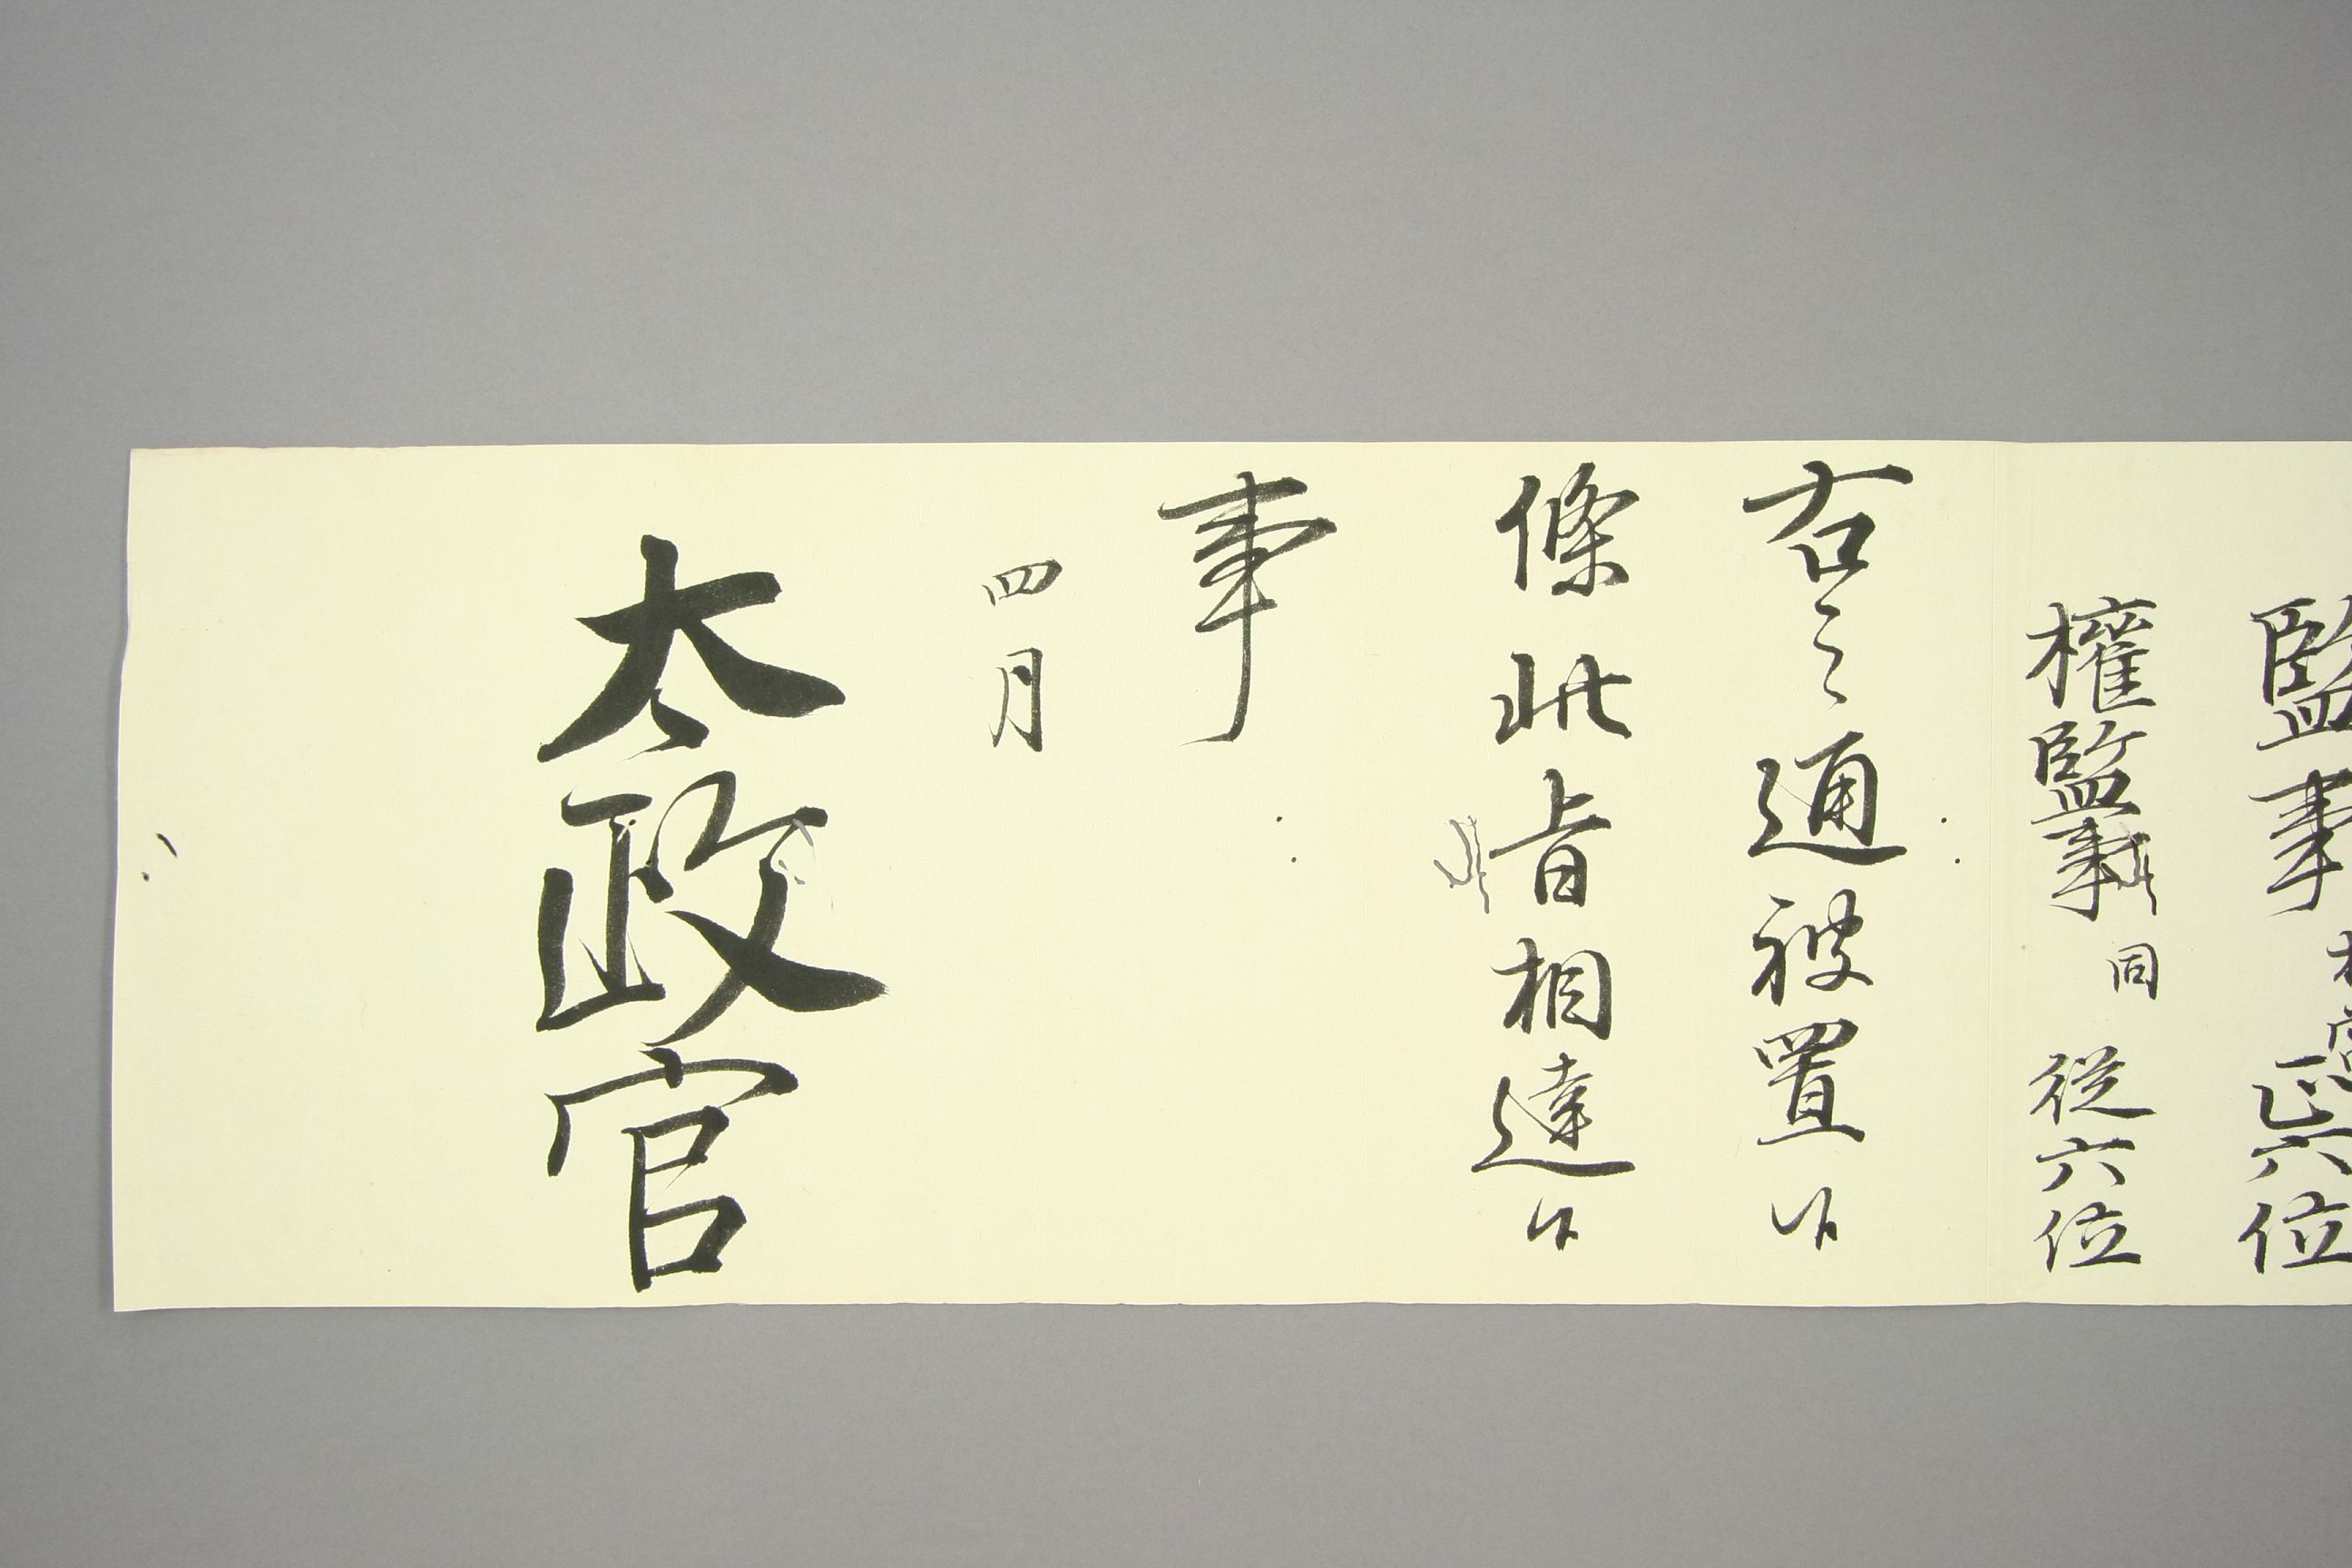 監事 正六位
權監事 同 從六位
右之通被置候
條此旨相達候
事
四月
太政官